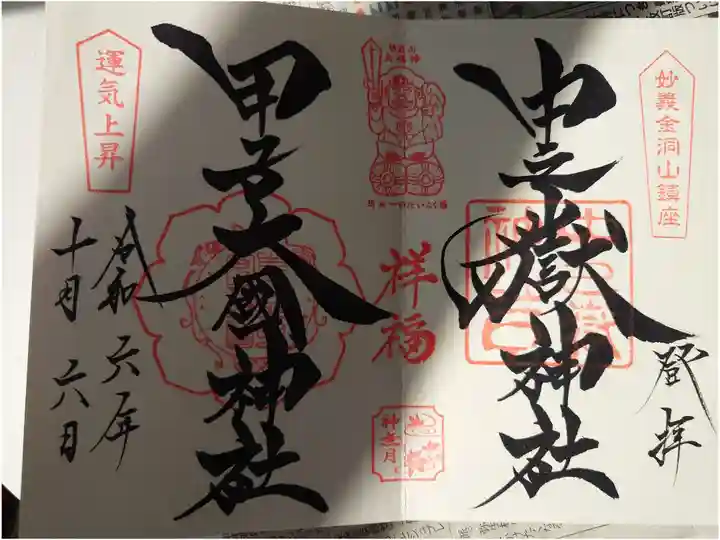 妙義金洞山鎮座
登拝
中之嶽神社
祥福
神無月
甲子大國神社
運気上昇
令和六年
十月六日